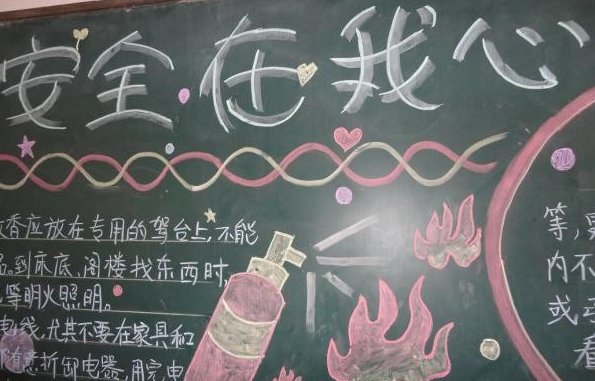 安全在我心
香应放在专用的驾台上,不能
到床底、阁楼找东西时,
等明火照明。
电线,尤其不要在家具和
随意拆卸电器,用完电
等,
内不
或
看